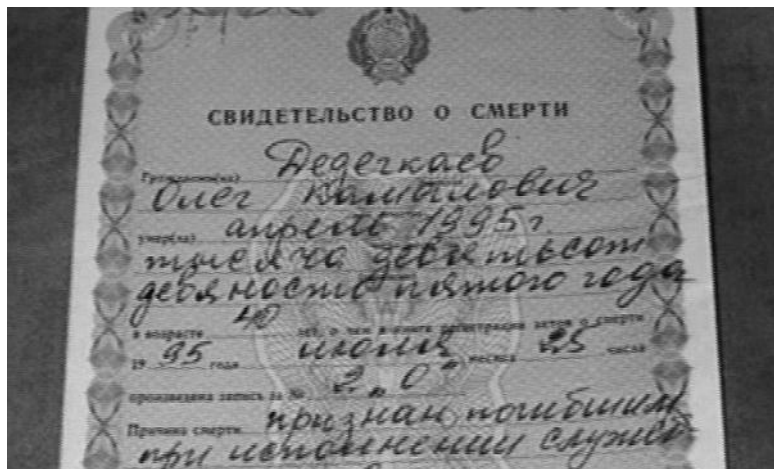 СВИДЕТЕЛЬСТВО О СМЕРТИ
Гражданин(ка) Дедегкаев
Олег Камылович
умер(ла) апрель 1995г.
тысяча девятьсот
девяносто пятого года
в возрасте 40 лет, о чем в книге регистрации актов о смерти
19 95 года июля месяца 25 числа
произведена запись за №
Причина смерти признан погибшим
при исполнении